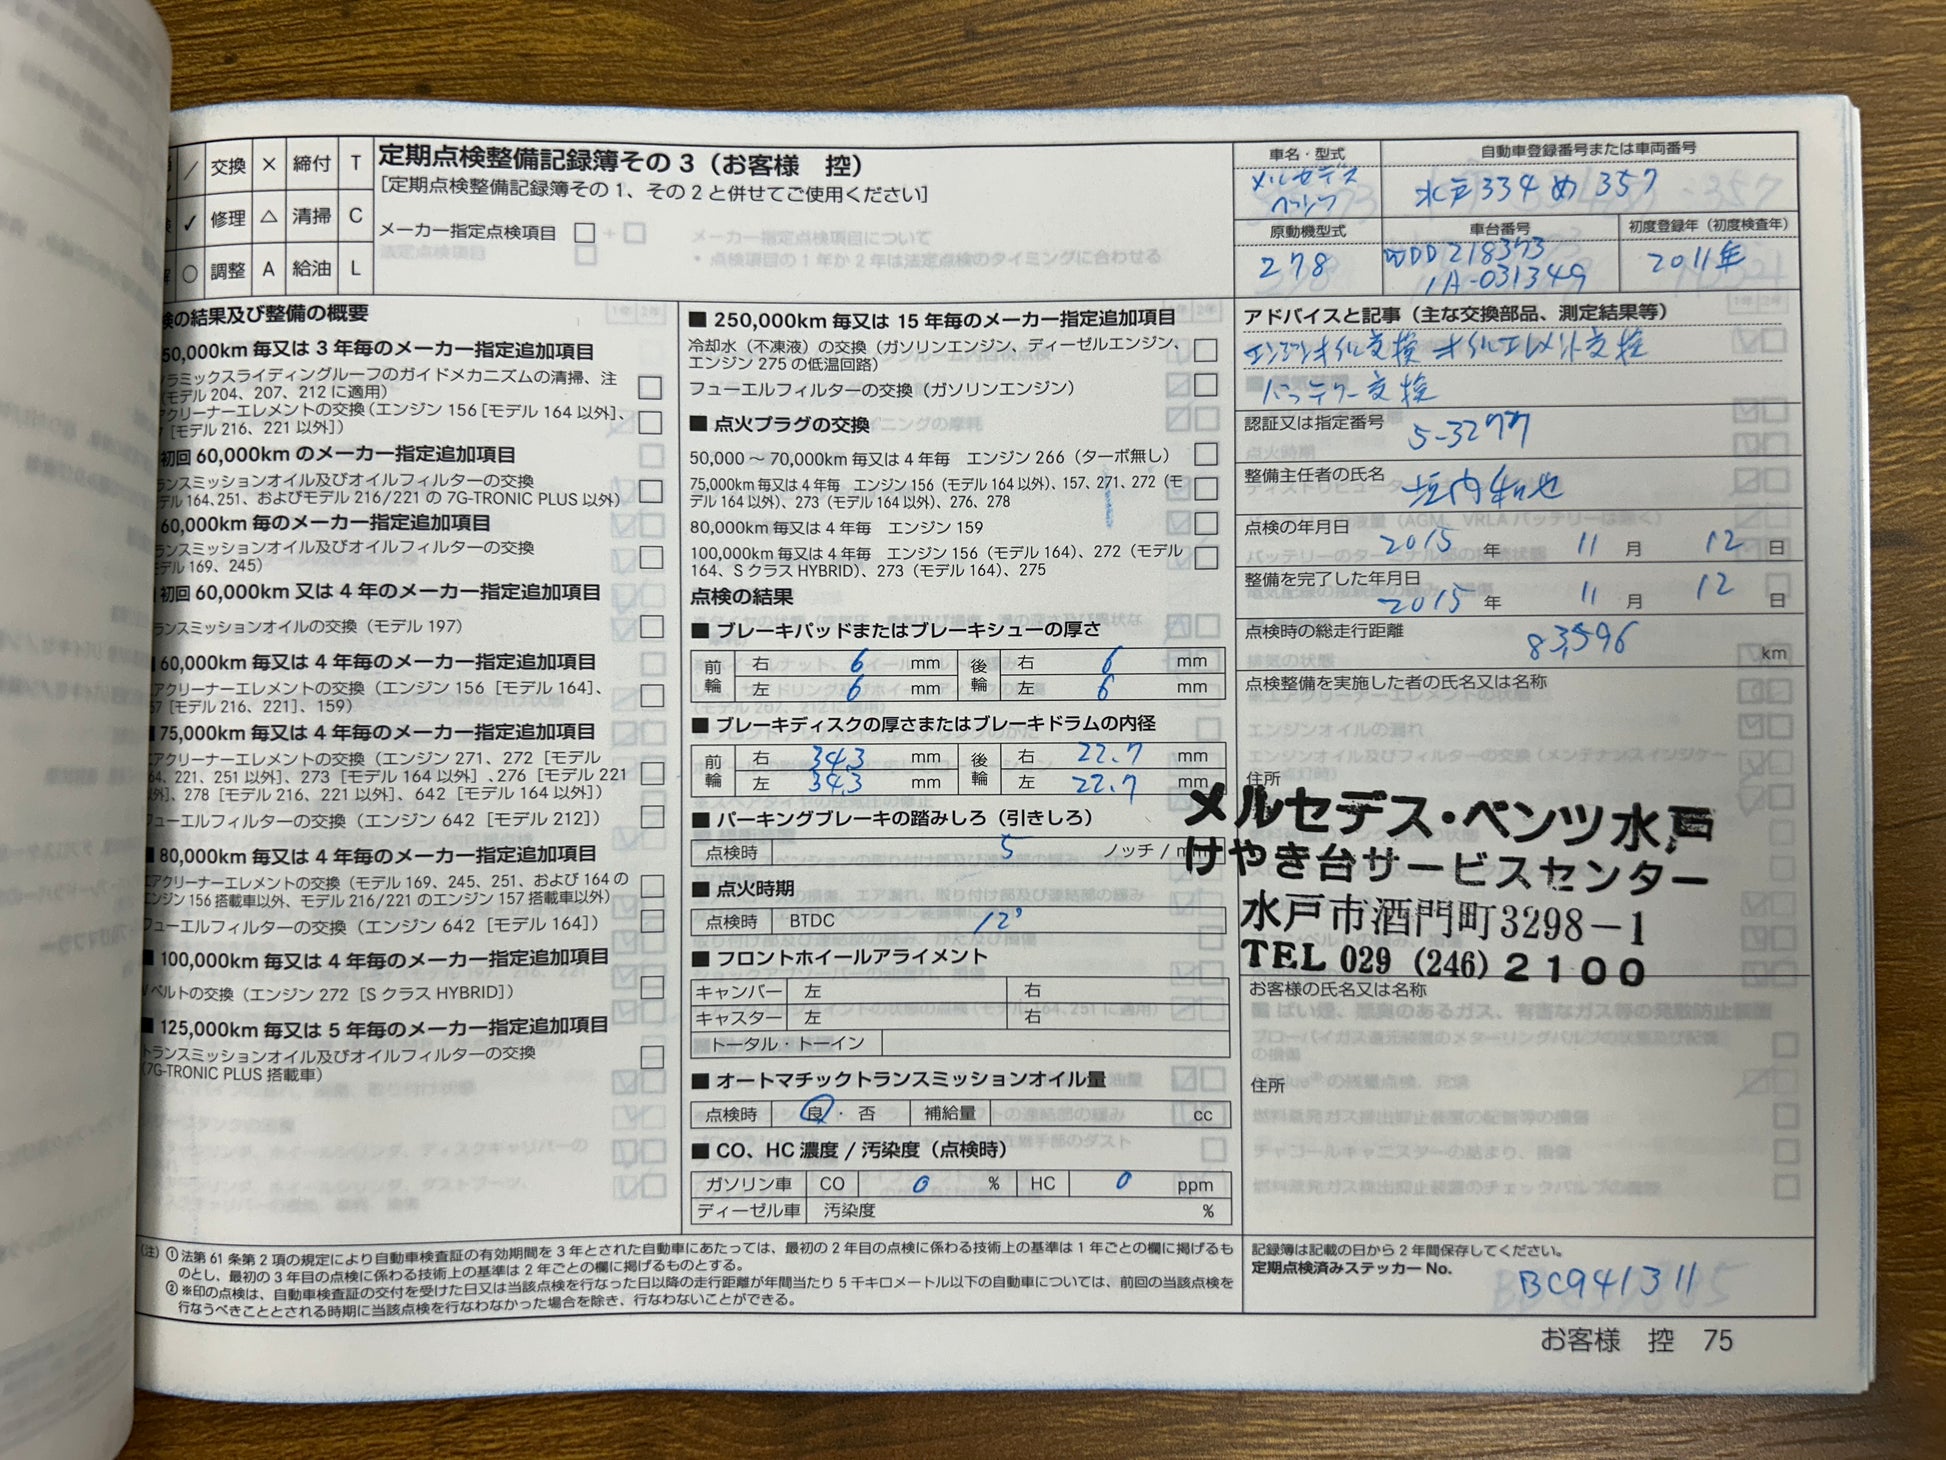 ／ 交換 × 締付 T
✓ 修理 △ 清掃 C
○ 調整 A 給油 L
定期点検整備記録簿その3（お客様 控）
［定期点検整備記録簿その1、その2と併せてご使用ください］
メーカー指定点検項目
法定点検項目
車名・型式
メルセデス
ベンツ
自動車登録番号または車両番号
水戸334 め 357
原動機型式
278
車台番号
WDD218373
1A-031349
初度登録年（初度検査年）
2011年
検の結果及び整備の概要
50,000km 毎又は 3 年毎のメーカー指定追加項目
ラミックスライディングルーフのガイドメカニズムの清掃、注
（モデル 204、207、212 に適用）
アクリーナーエレメントの交換（エンジン 156［モデル 164 以外］、
［モデル 216、221 以外］）
初回 60,000km のメーカー指定追加項目
ランスミッションオイル及びオイルフィルターの交換
デル 164、251、およびモデル 216/221 の 7G-TRONIC PLUS 以外）
60,000km 毎のメーカー指定追加項目
ランスミッションオイル及びオイルフィルターの交換
モデル 169、245）
初回 60,000km 又は 4 年のメーカー指定追加項目
ランスミッションオイルの交換（モデル 197）
■ 60,000km 毎又は 4 年毎のメーカー指定追加項目
エアクリーナーエレメントの交換（エンジン 156［モデル 164］、
57［モデル 216、221］、159）
■ 75,000km 毎又は 4 年毎のメーカー指定追加項目
エアクリーナーエレメントの交換（エンジン 271、272［モデル
64、221、251 以外］、273［モデル 164 以外］、276［モデル 221
以外］、278［モデル 216、221 以外］、642［モデル 164 以外］）
フューエルフィルターの交換（エンジン 642［モデル 212］）
■ 80,000km 毎又は 4 年毎のメーカー指定追加項目
エアクリーナーエレメントの交換（モデル 169、245、251、および 164 の
エンジン 156 搭載車以外、モデル 216/221 のエンジン 157 搭載車以外）
フューエルフィルターの交換（エンジン 642［モデル 164］）
■ 100,000km 毎又は 4 年毎のメーカー指定追加項目
Vベルトの交換（エンジン 272［S クラス HYBRID］）
■ 125,000km 毎又は 5 年毎のメーカー指定追加項目
トランスミッションオイル及びオイルフィルターの交換
（7G-TRONIC PLUS 搭載車）
■ 250,000km 毎又は 15 年毎のメーカー指定追加項目
冷却水（不凍液）の交換（ガソリンエンジン、ディーゼルエンジン、
エンジン 275 の低温回路）
フューエルフィルターの交換（ガソリンエンジン）
■ 点火プラグの交換
50,000 ～ 70,000km 毎又は 4 年毎 エンジン 266（ターボ無し）
75,000km 毎又は 4 年毎 エンジン 156（モデル 164 以外）、157、271、272（モ
デル 164 以外）、273（モデル 164 以外）、276、278
80,000km 毎又は 4 年毎 エンジン 159
100,000km 毎又は 4 年毎 エンジン 156（モデル 164）、272（モデル
164、S クラス HYBRID）、273（モデル 164）、275
点検の結果
■ ブレーキパッドまたはブレーキシューの厚さ
前輪 右 6 mm 後輪 右 6 mm
左 6 mm 左 6 mm
■ ブレーキディスクの厚さまたはブレーキドラムの内径
前輪 右 34.3 mm 後輪 右 22.7 mm
左 34.3 mm 左 22.7 mm
■ パーキングブレーキの踏みしろ（引きしろ）
点検時 5 ノッチ / mm
■ 点火時期
点検時 BTDC 12°
■ フロントホイールアライメント
キャンバー 左 右
キャスター 左 右
トータル・トーイン
■ オートマチックトランスミッションオイル量
点検時 良・否 補給量 cc
■ CO、HC 濃度 / 汚染度（点検時）
ガソリン車 CO 0 % HC 0 ppm
ディーゼル車 汚染度 %
アドバイスと記事（主な交換部品、測定結果等）
エンジンオイル交換 オイルエレメント交換
バッテリー交換
認証又は指定番号 5-3277
整備主任者の氏名 垣内和也
点検の年月日
2015 年 11 月 12 日
整備を完了した年月日
2015 年 11 月 12 日
点検時の総走行距離 83,596 km
点検整備を実施した者の氏名又は名称
住所
メルセデス・ベンツ水戸
けやき台サービスセンター
水戸市酒門町3298－1
TEL 029 (246) 2100
お客様の氏名又は名称
住所
（注）① 法第 61 条第 2 項の規定により自動車検査証の有効期間を 3 年とされた自動車にあたっては、最初の 2 年目の点検に係わる技術上の基準は 1 年ごとの欄に掲げるも
のとし、最初の 3 年目の点検に係わる技術上の基準は 2 年ごとの欄に掲げるものとする。
② ※印の点検は、自動車検査証の交付を受けた日又は当該点検を行なった日以降の走行距離が年間当たり 5 千キロメートル以下の自動車については、前回の当該点検を
行なうべきこととされる時期に当該点検を行なわなかった場合を除き、行なわないことができる。
記録簿は記載の日から 2 年間保存してください。
定期点検済みステッカー No.
BC941311
お客様 控 75